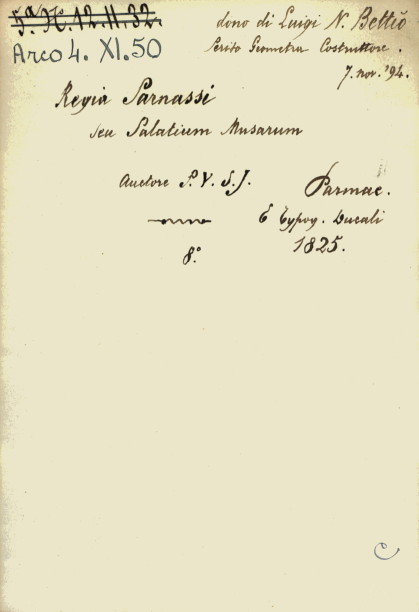 5ª X. 12. II. 32.
Arco 4. XI. 50
dono di Luigi N. Bettiò
Perito Geometra Costruttore.
7. nov. '94.
Regia Parnassi
seu Palatium Musarum
Auctore P. V. S. J.
Parmae.
E Typog. Ducali
1825.
8.°